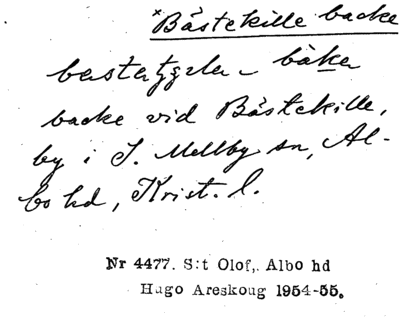 *Båstekille backe
bastatjzla - båka
backe vid Båstekille,
by i S. Mellby sn, Al-
bo hd, Krist. l.
Nr 4477. S:t Olof,. Albo hd
Hugo Areskoug 1954-55.